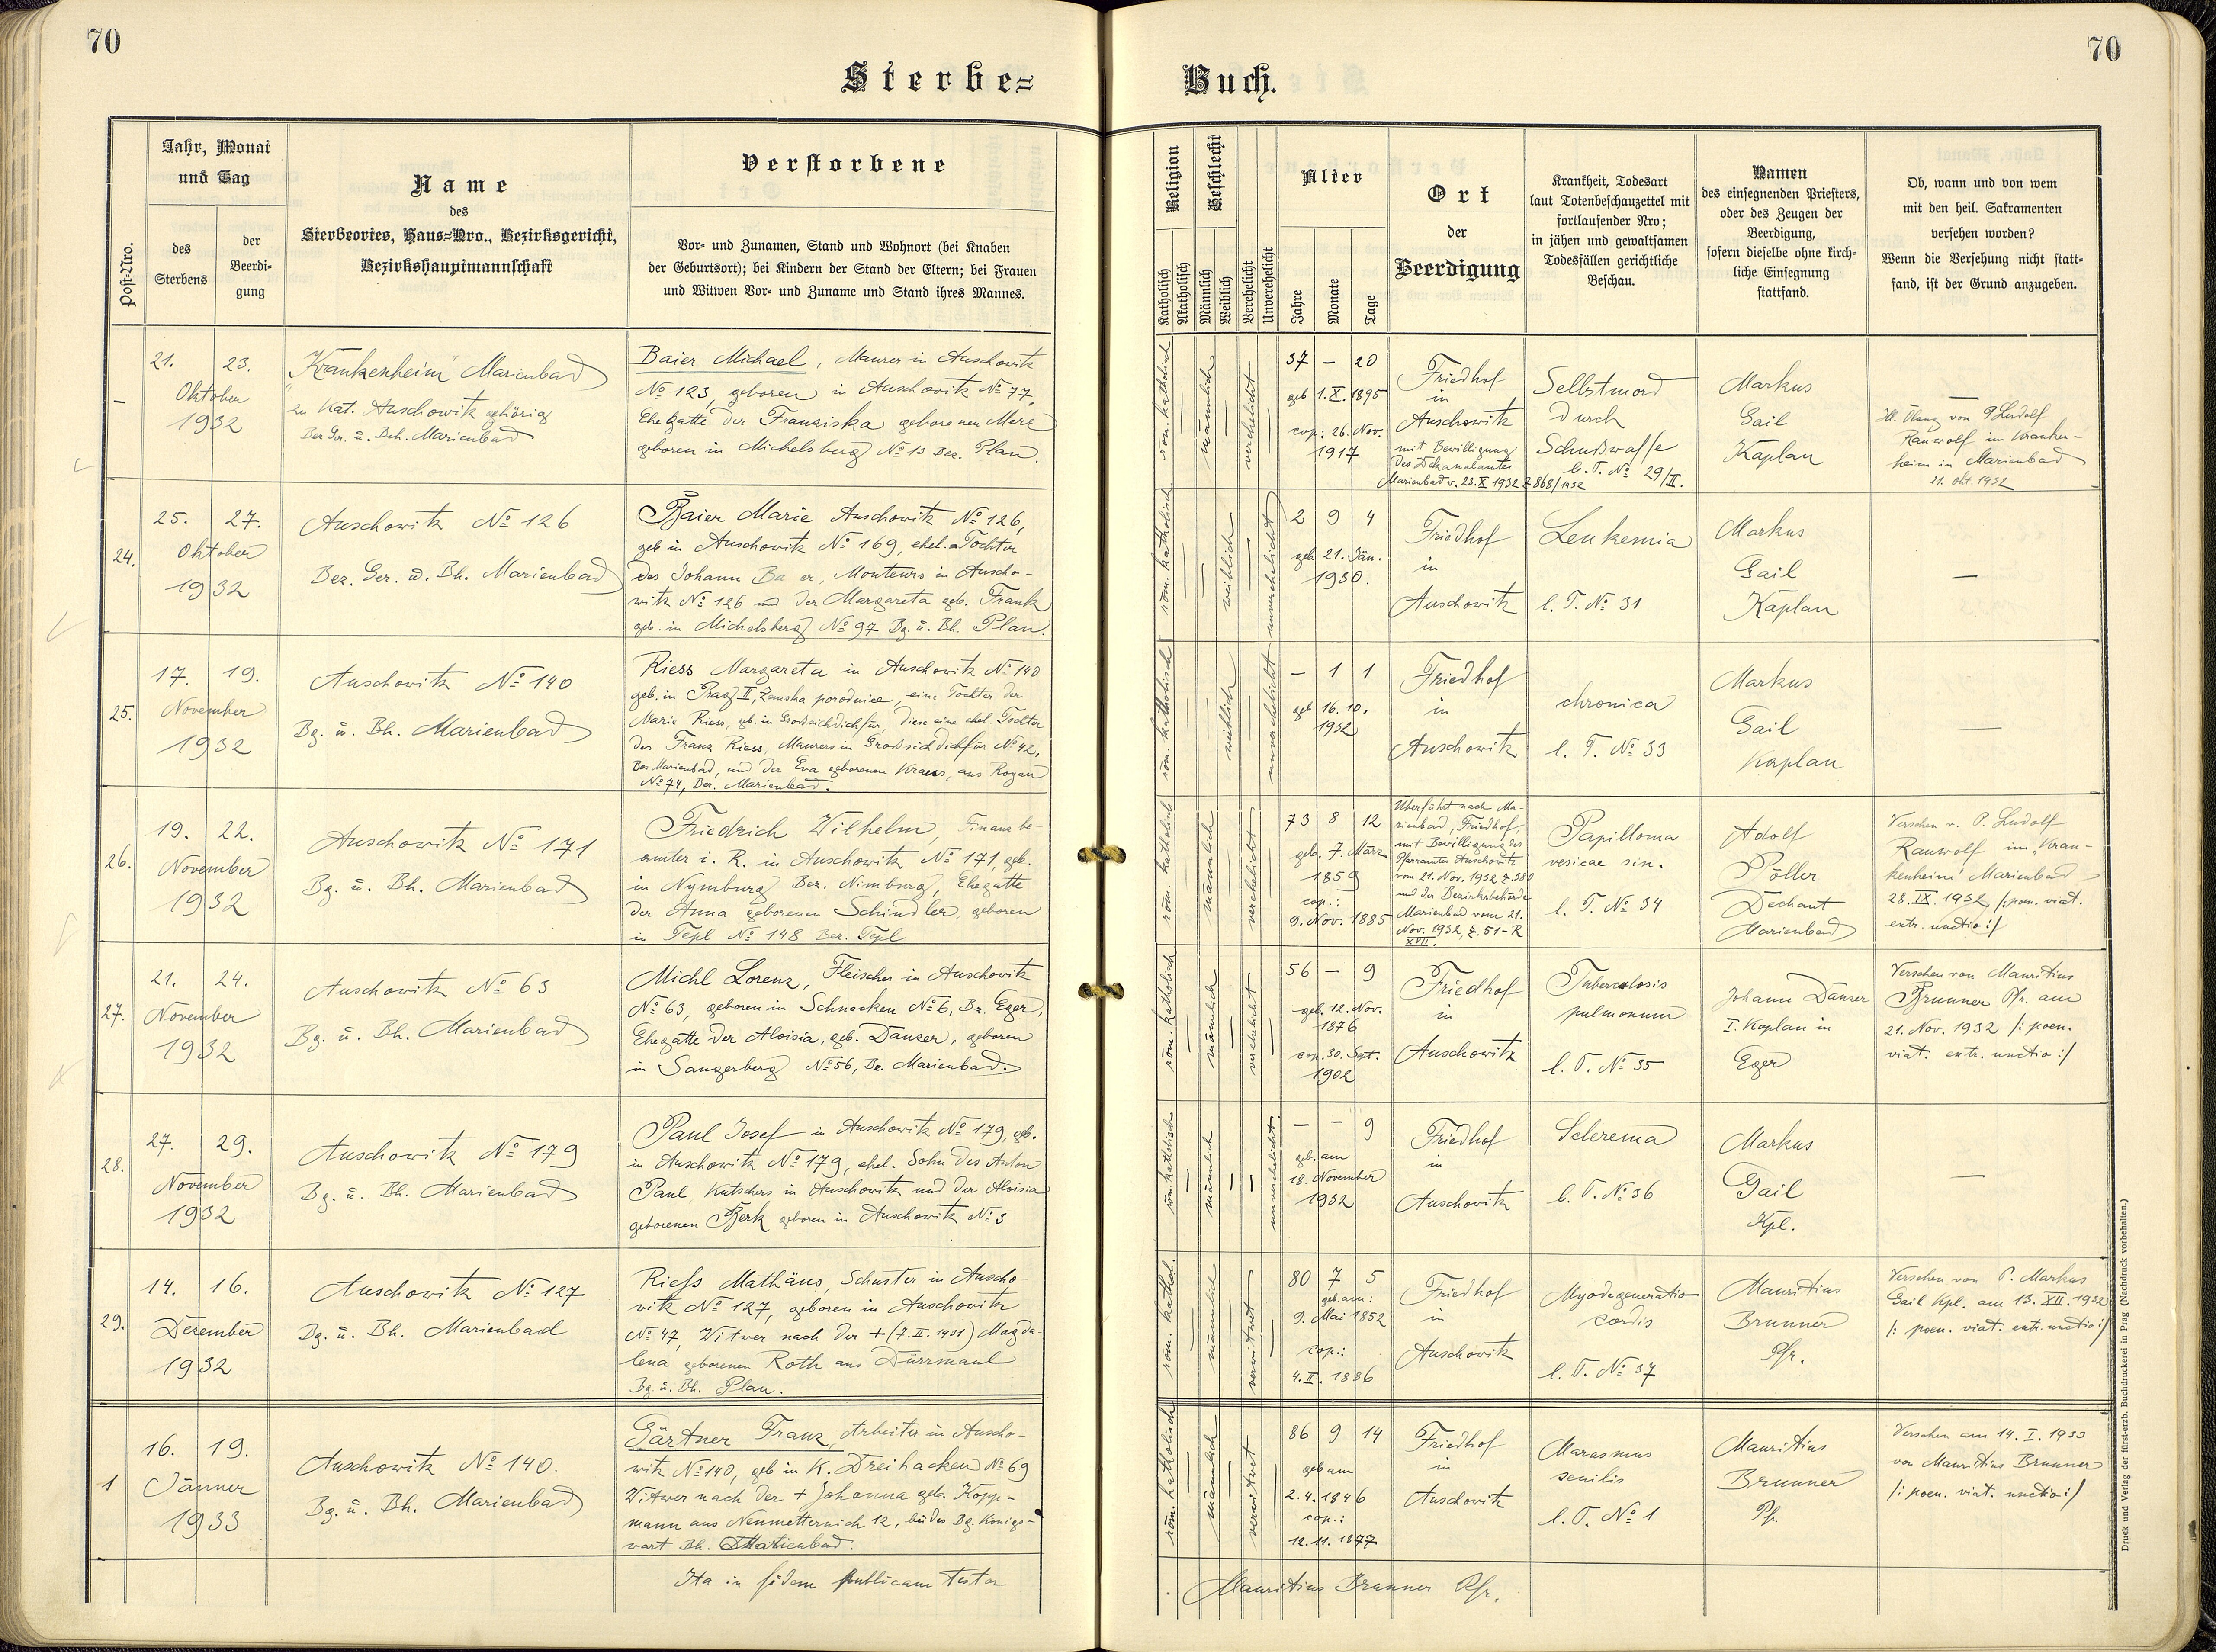 70
70
Sterbe=
Buch.
Post-Nro.
Jahr, Monat
und Tag
des
Sterbens
der
Beerdi-
gung
Name
des
Sterbeortes, Haus=Nro., Bezirksgericht,
Bezirkshauptmannschaft
Verstorbene
Vor- und Zunamen, Stand und Wohnort (bei Knaben
der Geburtsort); bei Kindern der Stand der Eltern; bei Frauen
und Witwen Vor- und Zuname und Stand ihres Mannes.
Religion
Katholisch
Akatholisch
Geschlecht
Männlich
Weiblich
Verehelicht
Unverehelicht
Alter
Jahre
Monate
Tage
Ort
der
Beerdigung
Krankheit, Todesart
laut Totenbeschauzettel mit
fortlaufender Nro;
in jähen und gewaltsamen
Todesfällen gerichtliche
Beschau.
Namen
des einsegnenden Priesters,
oder des Zeugen der
Beerdigung,
sofern dieselbe ohne kirch-
liche Einsegnung
stattfand.
Ob, wann und von wem
mit den heil. Sakramenten
versehen worden?
Wenn die Versehung nicht statt-
fand, ist der Grund anzugeben.
–
21. 23.
Oktober
1932
"Krankenheim" Marienbad
zu Kat. Auschowitz gehörig
Bez. Ger. u. Beh. Marienbad
Baier Michael, Maurer in Auschowitz
№ 123, geboren in Auschowitz № 77,
Ehegatte der Franziska geborenen
geboren in Michelsberg № 13 Bez. Plan.
röm. katholisch
männlich
verehelicht
37 – 20
geb 1.X.1895
cop: 26. Nov.
1917
Friedhof
in
Auschowitz
mit Bewilligung
des Dekanalamtes
Marienbad v. 23.X 1932 Z 868/1932
Selbstmord
durch
Schußwaffe
l. T. № 29/II.
Markus
Gail
Kaplan
von P. Ludolf
Rauwolf im Kranken-
heim in Marienbad
21. Okt. 1932
24.
25. 27.
Oktober
1932
Auschowitz № 126
Bez. Ger. u. Bh. Marienbad
Baier Marie Auschowitz № 126,
geb in Auschowitz № 169, ehel. Tochter
des Johann Ba er, Monteurs in Auscho-
witz № 126 und der Margareta geb. Frank
geb. in Michelsberg № 97 Bg. u. Bh. Plan.
röm. katholisch
weiblich
unverehelicht
2 9 4
geb. 21. Jän.
1930.
Friedhof
in
Auschowitz
Leukemia
l. T. № 31
Markus
Gail
Kaplan
—
25.
17. 19.
November
1932
Auschowitz № 140
Bg. u. Bh. Marienbad
Riess Margareta in Auschowitz № 140
geb. in Prag II, Zemska porodnice, eine Tochter der
Marie Riess, geb. in Großsichdichfür, diese eine ehel. Tochter
des Franz Riess, Maurers in Großsichdichfür № 42,
Bez. Marienbad, und der Eva geborenen Kraus, aus Royau
№ 74, Bez. Marienbad.
röm. katholisch
weiblich
unverehelicht
– 1 1
geb 16. 10.
1932
Friedhof
in
Auschowitz
chronica
l. T. № 33
Markus
Gail
Kaplan
—
26.
19. 22.
November
1932
Auschowitz № 171
Bg. u. Bh. Marienbad
Friedrich Wilhelm, Finanzbe-
amter i. R. in Auschowitz № 171, geb.
in Nymburg Bez. Nimburg, Ehegatte
der Anna geborenen Schindler, geboren
in Tepl № 148 Bez. Tepl
röm. katholisch
männlich
verehelicht
73 8 12
geb. 7. März
1859
cop.:
9. Nov. 1885
Überführt nach Ma-
rienbad, Friedhof,
mit Bewilligung des
Pfarramtes Auschowitz
vom 21. Nov. 1932 Z. 380
und der Bezirksbehörde
Marienbad vom 21.
Nov. 1932, Z. 51-R
XVII.
Papilloma
vesicae sin.
l. T. № 34
Adolf
Pöller
Dechant
Marienbad
Versehen v. P. Ludolf
Rauwolf im "Kran-
kenheim" Marienbad
28.IX.1932 /: poen. viat.
extr. unctio :/
27.
21. 24.
November
1932
Auschowitz № 63
Bg. u. Bh. Marienbad
Michl Lorenz, Fleischer in Auschowitz
№ 63, geboren in Schnecken № 6, Bz. Eger,
Ehegatte der Aloisia, geb. Danzer, geboren
in Sangerberg № 56, Bz. Marienbad.
röm. katholisch
männlich
verehelicht
56 – 9
geb. 12. Nov.
1876
cop. 30. Sept.
1902
Friedhof
in
Auschowitz
Tuberculosis
pulmonum
l. T. № 35
Johann Danzer
I. Kaplan in
Eger
Versehen von Mauritius
Brunner Pfr. am
21. Nov. 1932 /: poen.
viat. extr. unctio :/
28.
27. 29.
November
1932
Auschowitz № 179
Bg. u. Bh. Marienbad
Paul Josef in Auschowitz № 179, geb.
in Auschowitz № 179, ehel. Sohn des Anton
Paul, Kutschers in Auschowitz und der Aloisia
geborenen Berk geboren in Auschowitz № 3
röm. katholisch
männlich
unverehelicht.
– – 9
geb. am
18. November
1932
Friedhof
in
Auschowitz
Sclerema
l. T. № 36
Markus
Gail
Kpl.
—
29.
14. 16.
Dezember
1932
Auschowitz № 127
Bg. u. Bh. Marienbad
Riess Mathäus, Schuster in Auscho-
witz № 127, geboren in Auschowitz
№ 47, Witwer nach der + (7.II.1931) Magda-
lena geborenen Roth aus Dürrmaul
Bg. u. Bh. Plan.
röm. kathol.
männlich
verwitwet
80 7 5
geb. am:
9. Mai 1852
cop.:
4.II.1886
Friedhof
in
Auschowitz
Myodegeneratio
cordis
l. T. № 37
Mauritius
Brunner
Pfr.
Versehen von P. Markus
Gail Kpl. am 13.XII.1932
/: poen. viat. extr. unctio :/
1
16. 19.
Jänner
1933
Auschowitz № 140.
Bg. u. Bh. Marienbad
Gärtner Franz, Arbeiter in Auscho-
witz № 140, geb in K. Dreihacken № 69
Witwer nach der + Johanna geb. Kopp-
mann aus Neumetternich 12, beides Bg. Königs-
wart Bh. Marienbad.
röm. katholisch
männlich
verwitwet
86 9 14
geb am
2.4.1846
cop.:
12.11.1877
Friedhof
in
Auschowitz
Marasmus
senilis
l. T. № 1
Mauritius
Brunner
Pfr.
Versehen am 14.I.1933
von Mauritius Brunner
/: poen. viat. unctio :/
Ita in fidem publicam testor
Mauritius Brunner Pfr.
Druck und Verlag der fürsterzb. Buchdruckerei in Prag (Nachdruck vorbehalten.)